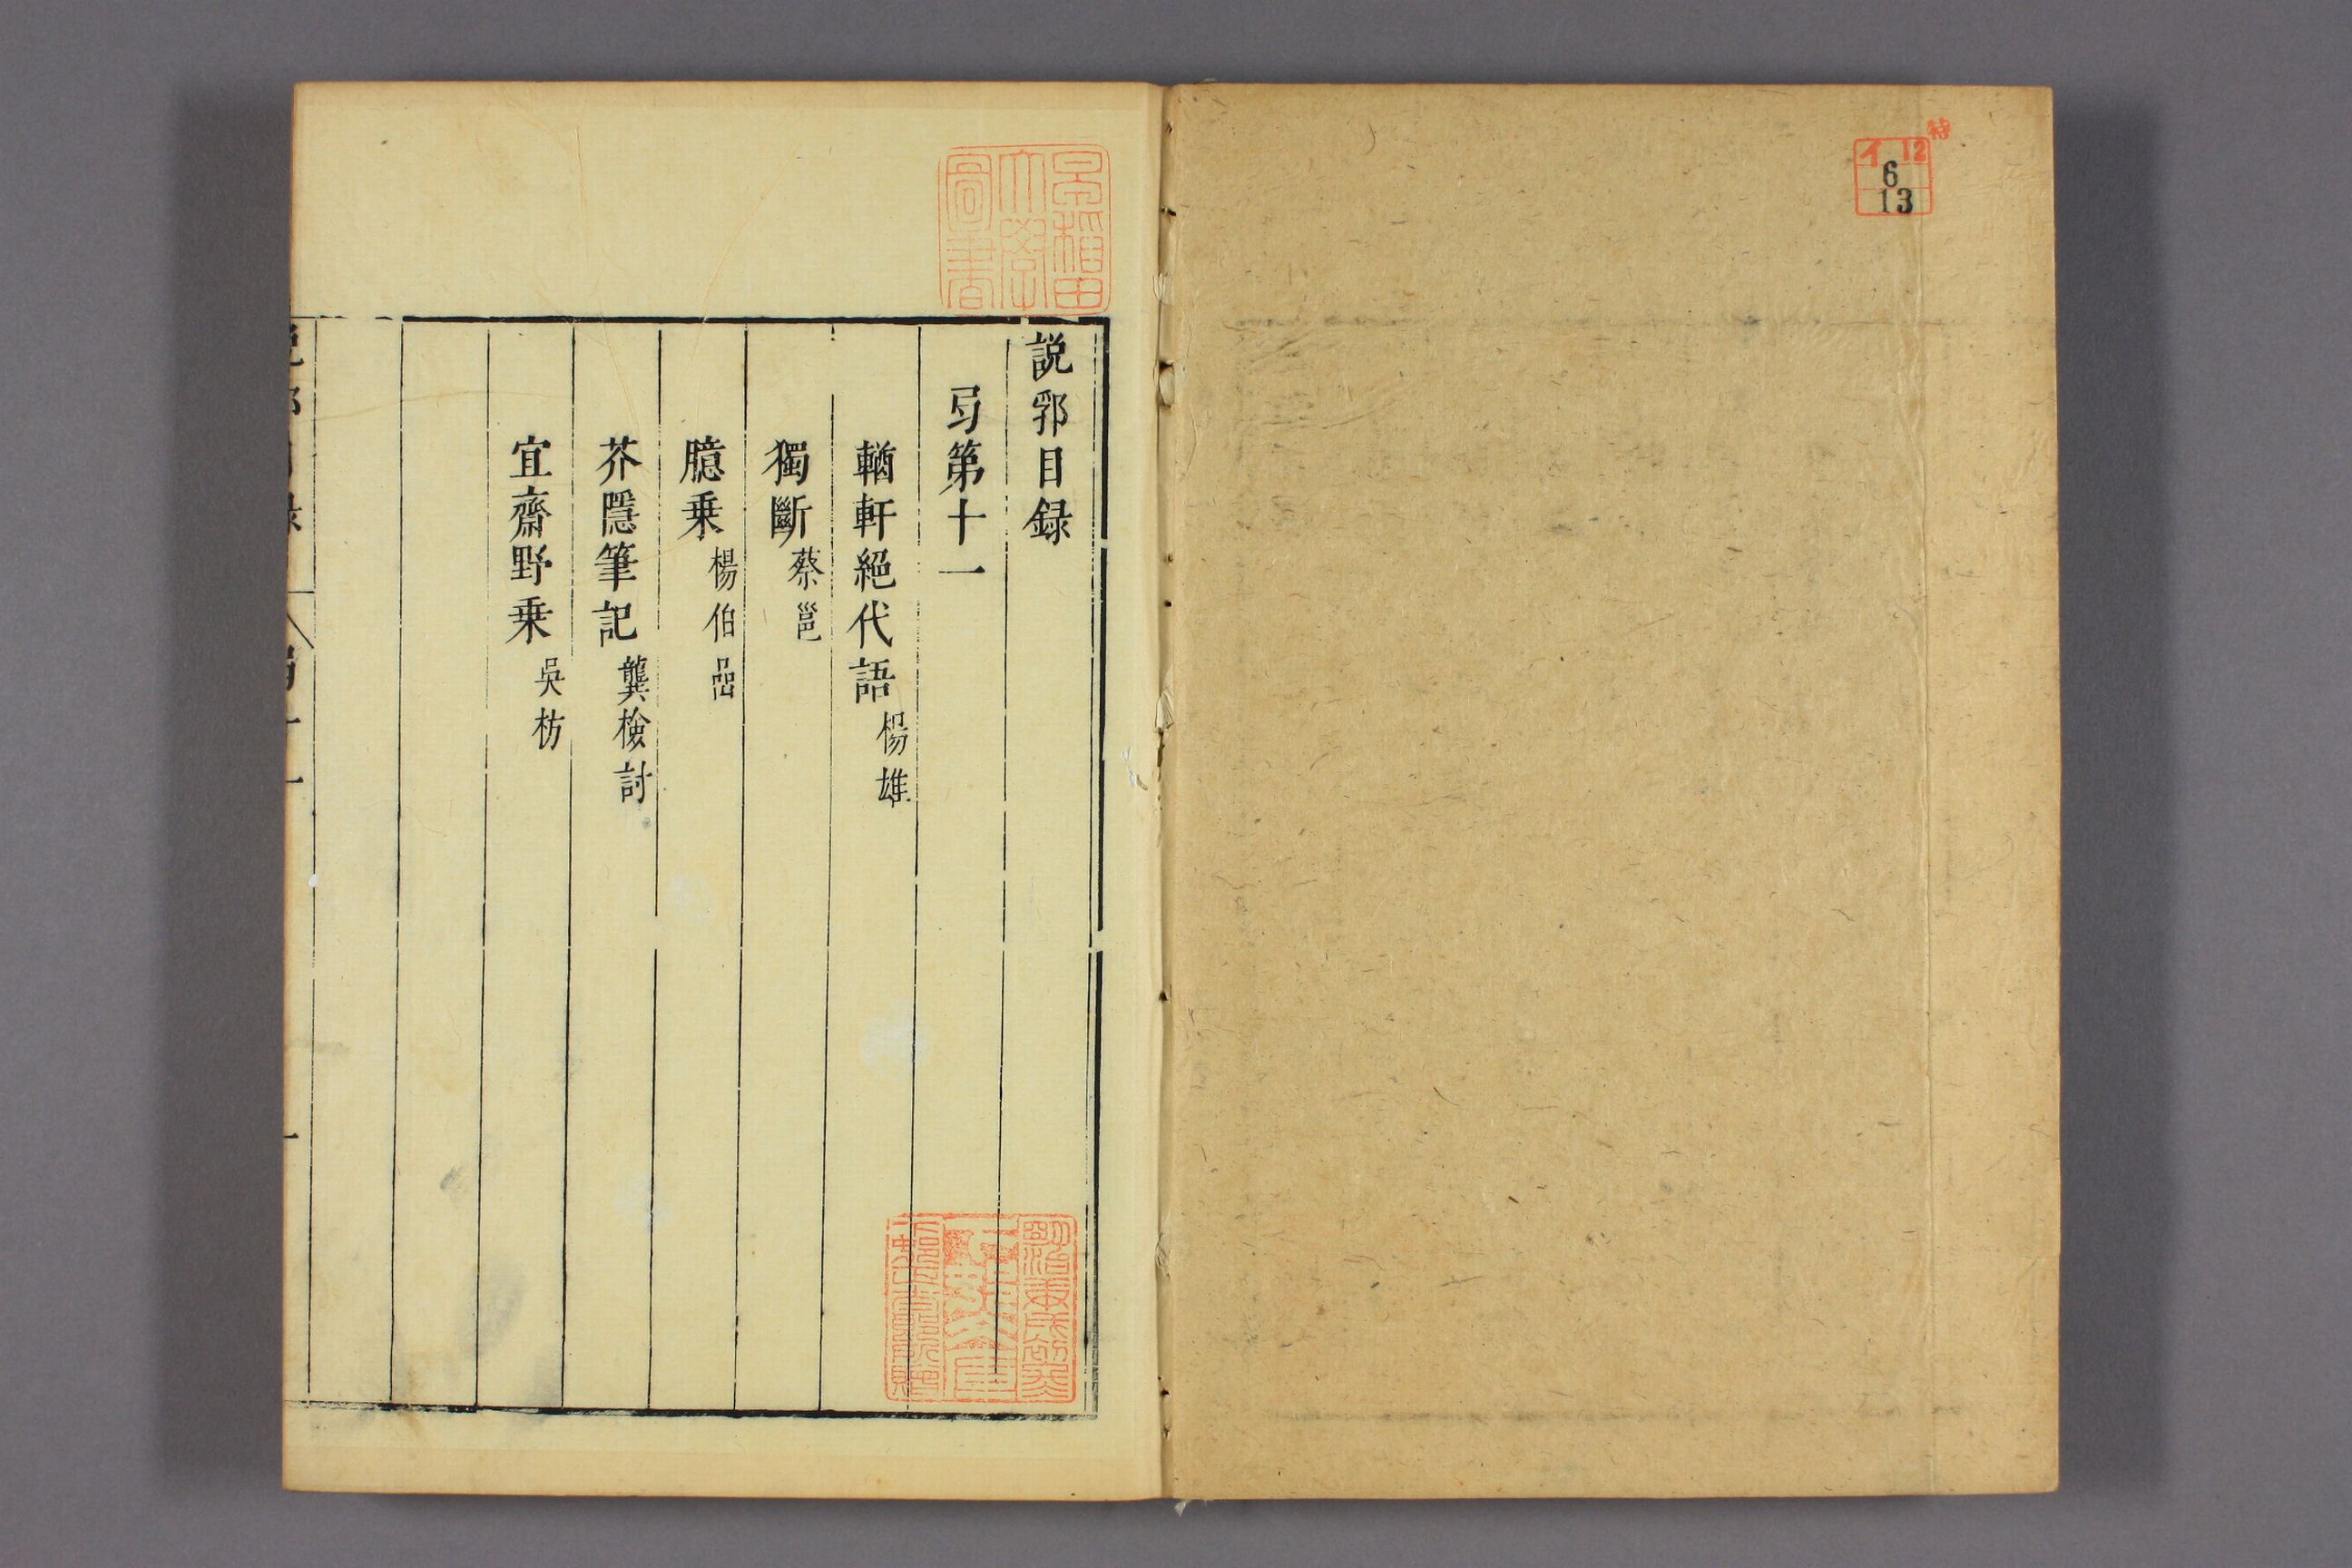 特
イ 12
6
13
早稲田
大學
圖書
説郛目録
弓第十一
輶軒絕代語 楊雄
獨斷 蔡邕
臆乗 楊伯嵒
芥隱筆記 龔檢討
宜齋野乗 吳枋